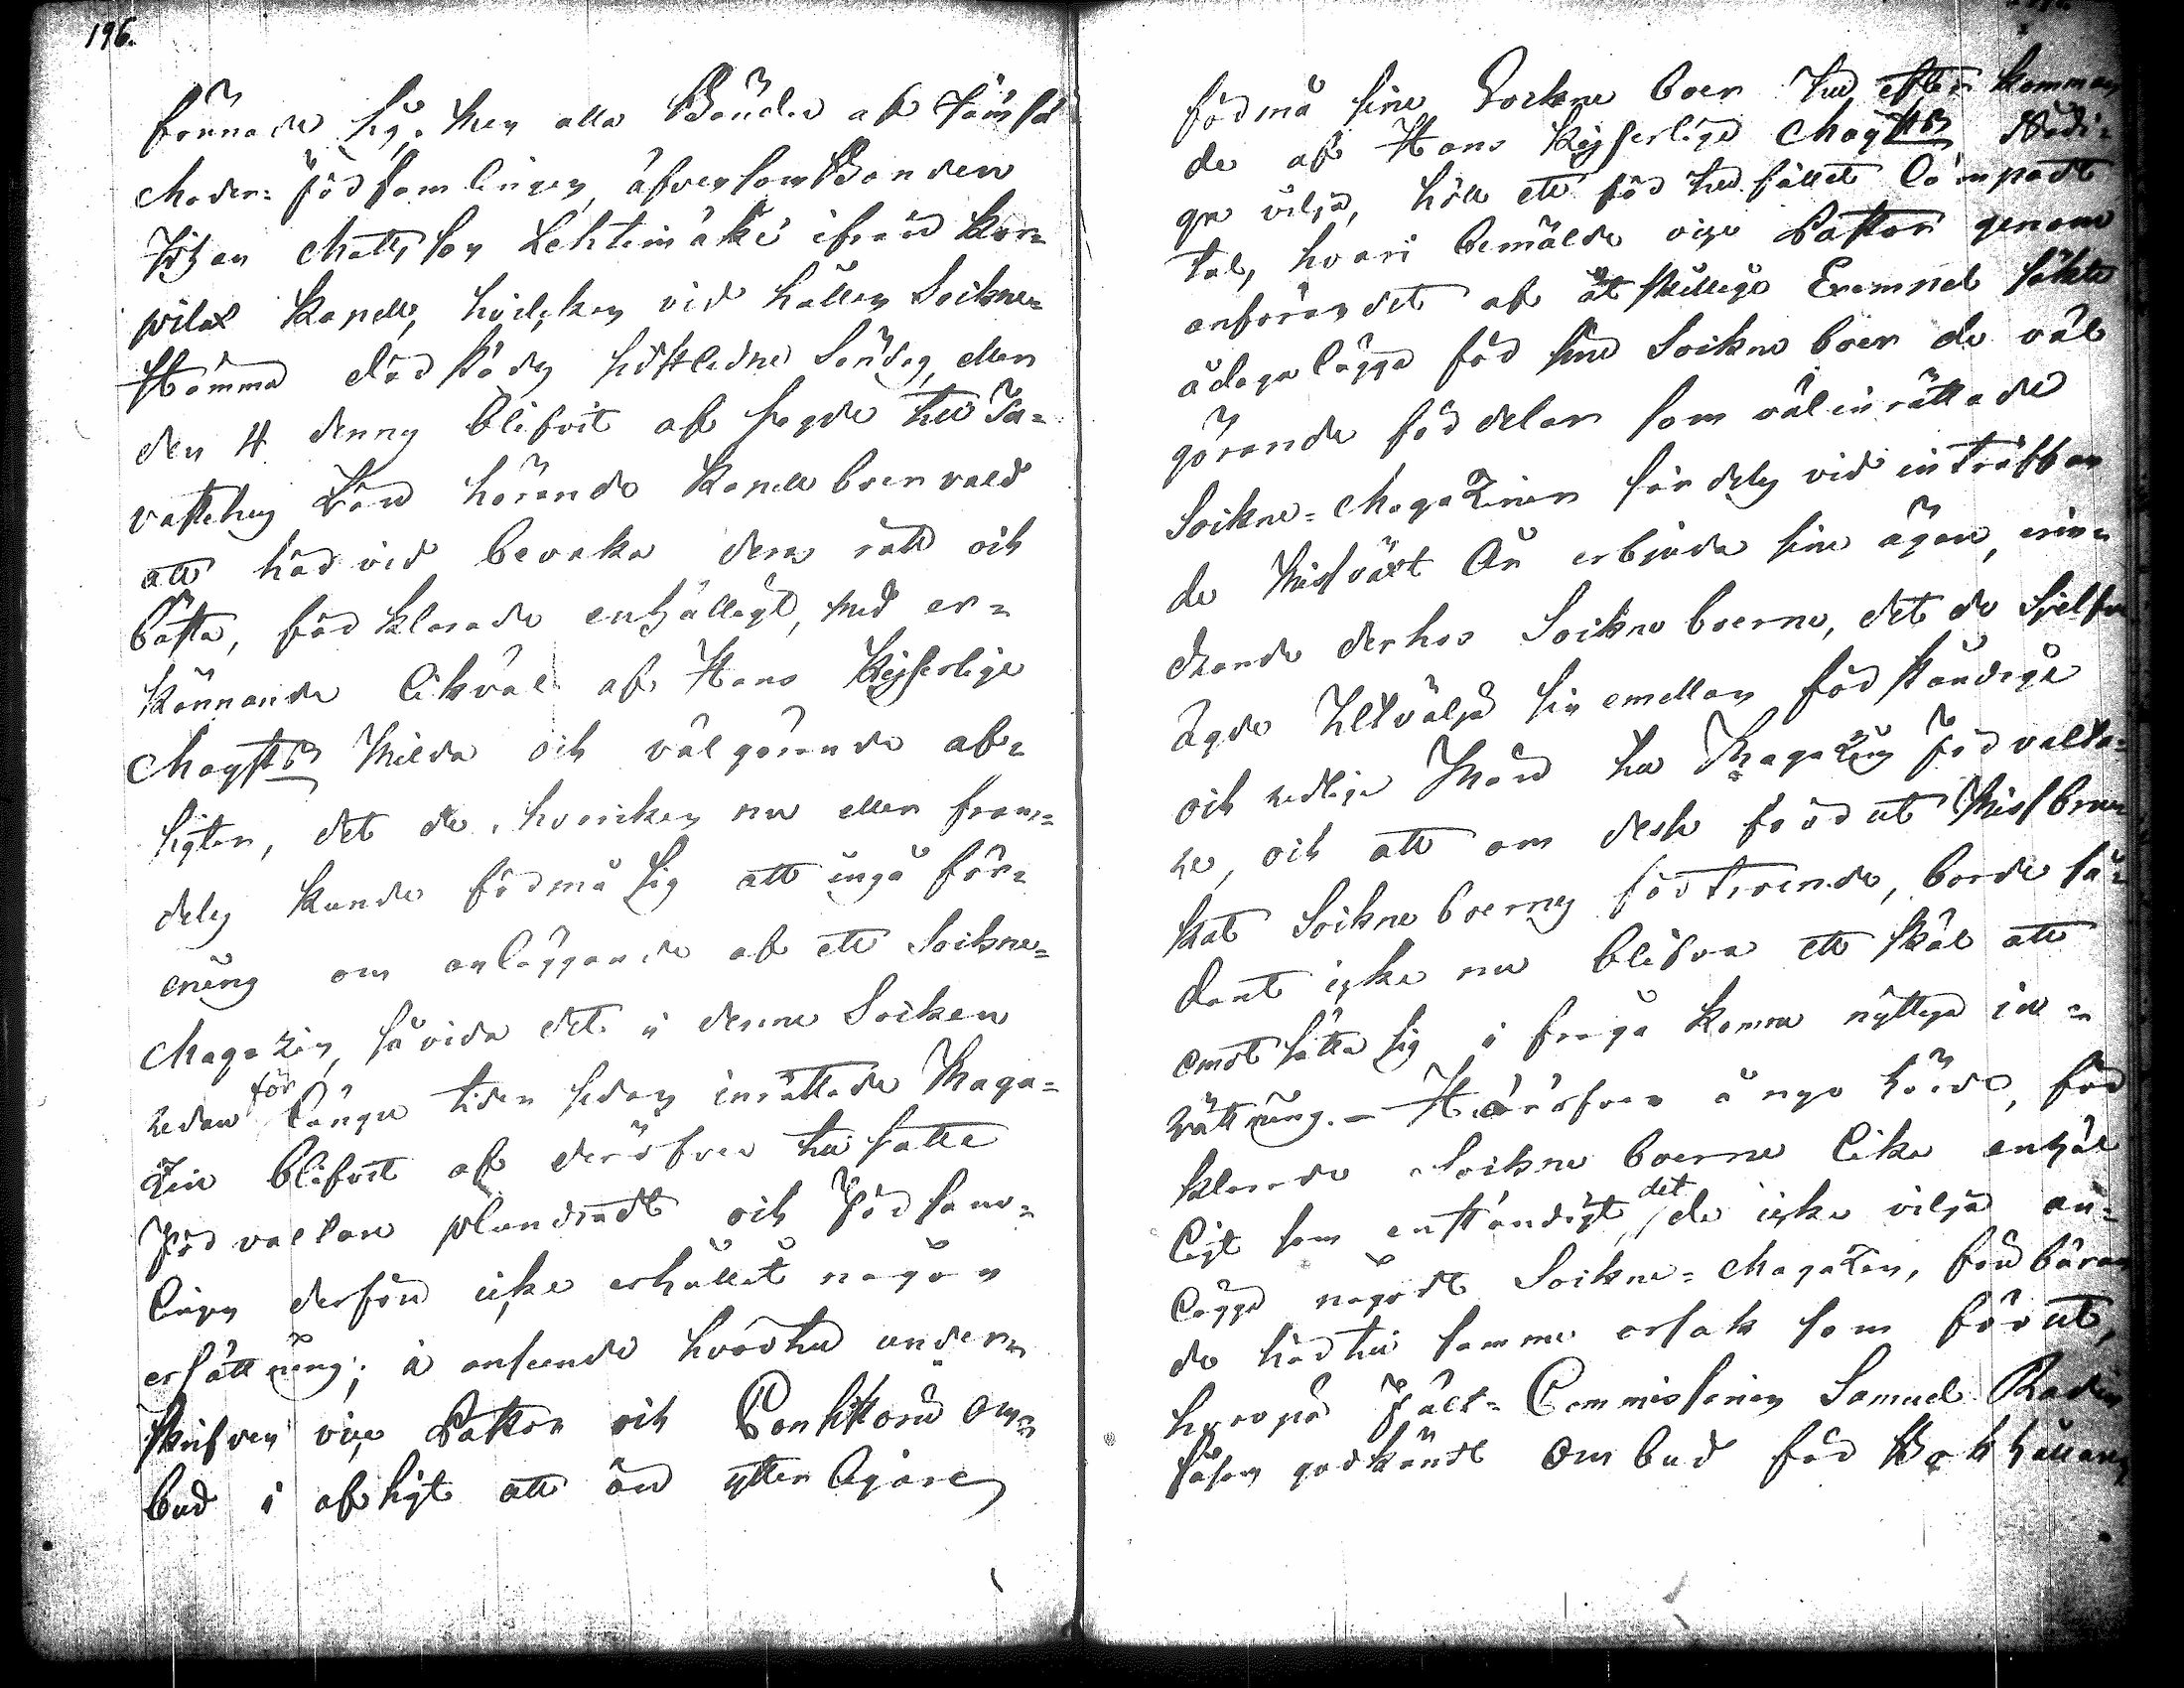 196.
funno de sig. Men alla Bönder af Jämsä
Moder-Församlingen, äfvensom Bonden
Johan Mattsson Lehtimäki ifrån Kor-
pilax Kapell, hvilken vid hållen Sockne-
stämma derstädes sistledne Söndag, eller
den 4 dennes blifvit af sagde till Ta-
vastehus Län hörande Kapellboer vald
att här vid bevaka deras rätt och
bästa, förklarade enhälligt, med er-
kännande likväl af Hans Kejserlige
Majsts milda och välgörande af-
sigter, det de, hvarken nu eller fram-
deles kunde förmå sig att ingå före-
ning om anläggande af ett Sockne-
Magazin, såvida det i denne Socken
redan för längre tider sedan inrättade Maga-
zin blifvit af deröfver till satte
Förvaltare plundradt och Försam-
lingen derför icke erhållit någon
ersättning; i anseende hvartill under-
skrifven vice Pastor och Consistorii Om-
bud i afsigt att än ytterligare
förmå sine Sockne boer till efterkomman-
de af Hans Kejserlige Majsts Nådi-
ge vilja, höll ett för tillfället lämpadt
tal, hvari bemälde vice Pastor genom
anförandet af åtskillige Exempel sökte
ådagalägga för sine Sockneboer de väl
görande fördelar som väl inrättade
Sockne-Magaziner särdeles vid inträffan
de Missväxt År erbjuda sine ägare, erin-
drande derhos Sockneboerne, det de Sjelfve
ägde utvälja sin emellan förståndige
och redlige Män till Magazins Förvalta-
re, och att om desse förut missbru-
kat Sockneboernes förtroende, borde så-
dant icke nu blifva ett skäl att
emotsätta sig i fråga komne nyttige in-
rättning. – Häröfver å nyo hörde, för
klarade Sockneboerne lika enhäl
ligt som enständigt, det de icke vilja an-
lägga något Sockne-Magazin, förebäran
de härtill samme orsak som förut,
hvarpå Fält-Commissarien Samuel Rodén
såsom godkändt Ombud för